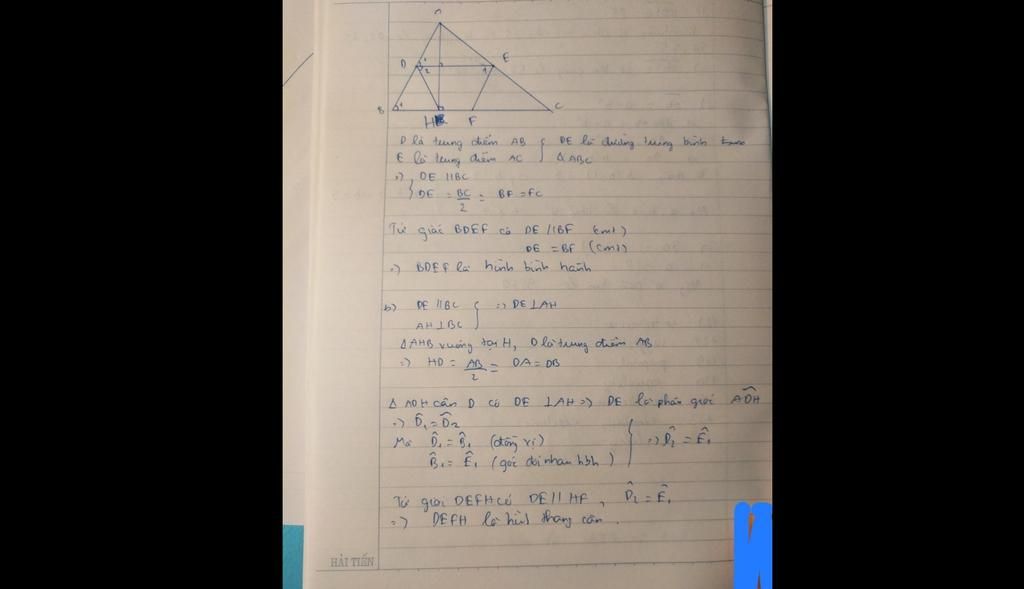 A
D 1 2 1 E
B 1 H F C
D là trung điểm AB } DE là đường trung bình
E là trung điểm AC } ΔABC
=> { DE // BC
DE = BC/2 = BF = FC
Tứ giác BDEF có DE // BF (cmt)
DE = BF (cmt)
=> BDEF là hình bình hành
b) DE // BC } => DE ⊥ AH
AH ⊥ BC
ΔAHB vuông tại H, D là trung điểm AB
=> HD = AB/2 = DA = DB
Δ ADH cân D có DE ⊥ AH => DE là phân giác ADH
=> D̂1 = D̂2
Mà D̂1 = B̂1 (đồng vị) } => D̂2 = Ê1
B̂1 = Ê1 (góc đối nhau hbh)
Tứ giác DEFH có DE // HF, D̂2 = Ê1
=> DEFH là hình thang cân.
HẢI TIẾN